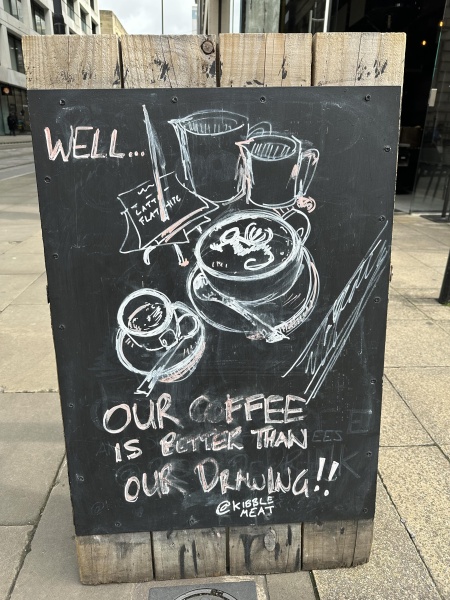 WELL...
LATT
FLAT
OUR COFFEE
IS BETTER THAN
OUR DRAWING!!
@KIBBLE
MEAT